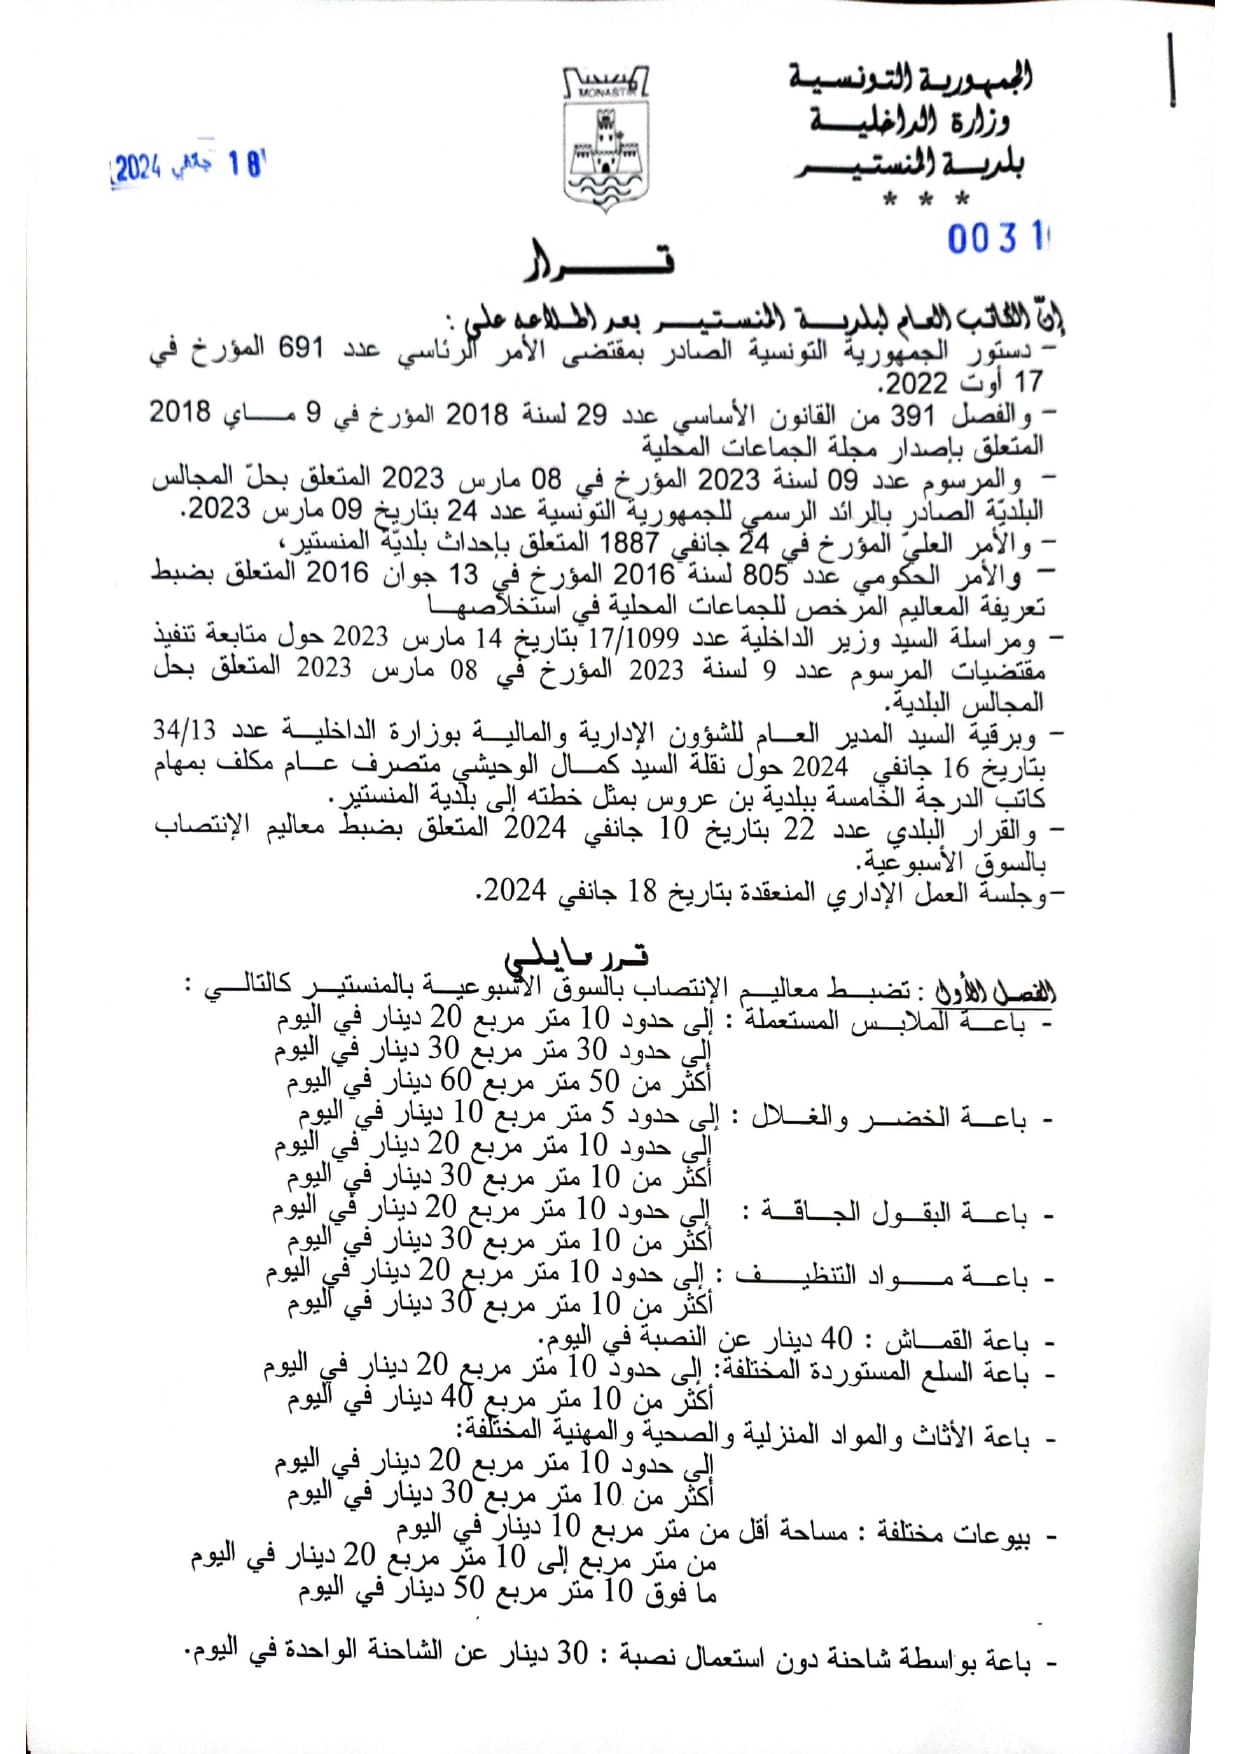 الجمهورية التونسية
وزارة الداخليـــة
بلديـــة المنستيـــر
* * *
MONASTIR
18 جانفي 2024
0031
قــــرار
إنّ الكاتب العام لبلديــة المنستيـــر بعد اطــلاعه على :
– دستور الجمهورية التونسية الصادر بمقتضى الأمر الرئاسي عدد 691 المؤرخ في
17 أوت 2022.
– والفصل 391 من القانون الأساسي عدد 29 لسنة 2018 المؤرخ في 9 مــاي 2018
المتعلق بإصدار مجلة الجماعات المحلية
– والمرسوم عدد 09 لسنة 2023 المؤرخ في 08 مارس 2023 المتعلق بحلّ المجالس
البلديّة الصادر بالرائد الرسمي للجمهورية التونسية عدد 24 بتاريخ 09 مارس 2023.
– والأمر العليّ المؤرخ في 24 جانفي 1887 المتعلق بإحداث بلديّة المنستير،
– والأمر الحكومي عدد 805 لسنة 2016 المؤرخ في 13 جوان 2016 المتعلق بضبط
تعريفة المعاليم المرخص للجماعات المحلية في استخلاصهــا
– ومراسلة السيد وزير الداخلية عدد 17/1099 بتاريخ 14 مارس 2023 حول متابعة تنفيذ
مقتضيات المرسوم عدد 9 لسنة 2023 المؤرخ في 08 مارس 2023 المتعلق بحل
المجالس البلدية.
– وبرقية السيد المدير العــام للشؤون الإدارية والماليــة بوزارة الداخليــة عدد 34/13
بتاريخ 16 جانفي 2024 حول نقلة السيد كمــال الوحيشي متصرف عــام مكلف بمهام
كاتب الدرجة الخامسة ببلدية بن عروس بمثل خطته إلى بلدية المنستير.
– والقرار البلدي عدد 22 بتاريخ 10 جانفي 2024 المتعلق بضبط معاليم الإنتصاب
بالسوق الأسبوعية.
–وجلسة العمل الإداري المنعقدة بتاريخ 18 جانفي 2024.
قـرر مـا يلـي
الفصل الأول : تضبــط معاليــم الإنتصاب بالسوق الأسبوعيــة بالمنستيــر كالتالــي :
- باعــة الملابــس المستعملة : إلى حدود 10 متر مربع 20 دينار في اليوم
إلى حدود 30 متر مربع 30 دينار في اليوم
أكثر من 50 متر مربع 60 دينار في اليوم
- باعــة الخضــر والغــلال : إلى حدود 5 متر مربع 10 دينار في اليوم
إلى حدود 10 متر مربع 20 دينار في اليوم
أكثر من 10 متر مربع 30 دينار في اليوم
- باعــة البقــول الجــافــة : إلى حدود 10 متر مربع 20 دينار في اليوم
أكثر من 10 متر مربع 30 دينار في اليوم
- باعــة مــواد التنظيــف : إلى حدود 10 متر مربع 20 دينار في اليوم
أكثر من 10 متر مربع 30 دينار في اليوم
- باعة القمــاش : 40 دينار عن النصبة في اليوم.
- باعة السلع المستوردة المختلفة: إلى حدود 10 متر مربع 20 دينار في اليوم
أكثر من 10 متر مربع 40 دينار في اليوم
- باعة الأثاث والمواد المنزلية والصحية والمهنية المختلفة:
إلى حدود 10 متر مربع 20 دينار في اليوم
أكثر من 10 متر مربع 30 دينار في اليوم
- بيوعات مختلفة : مساحة أقل من متر مربع 10 دينار في اليوم
من متر مربع إلى 10 متر مربع 20 دينار في اليوم
ما فوق 10 متر مربع 50 دينار في اليوم
- باعة بواسطة شاحنة دون استعمال نصبة : 30 دينار عن الشاحنة الواحدة في اليوم.